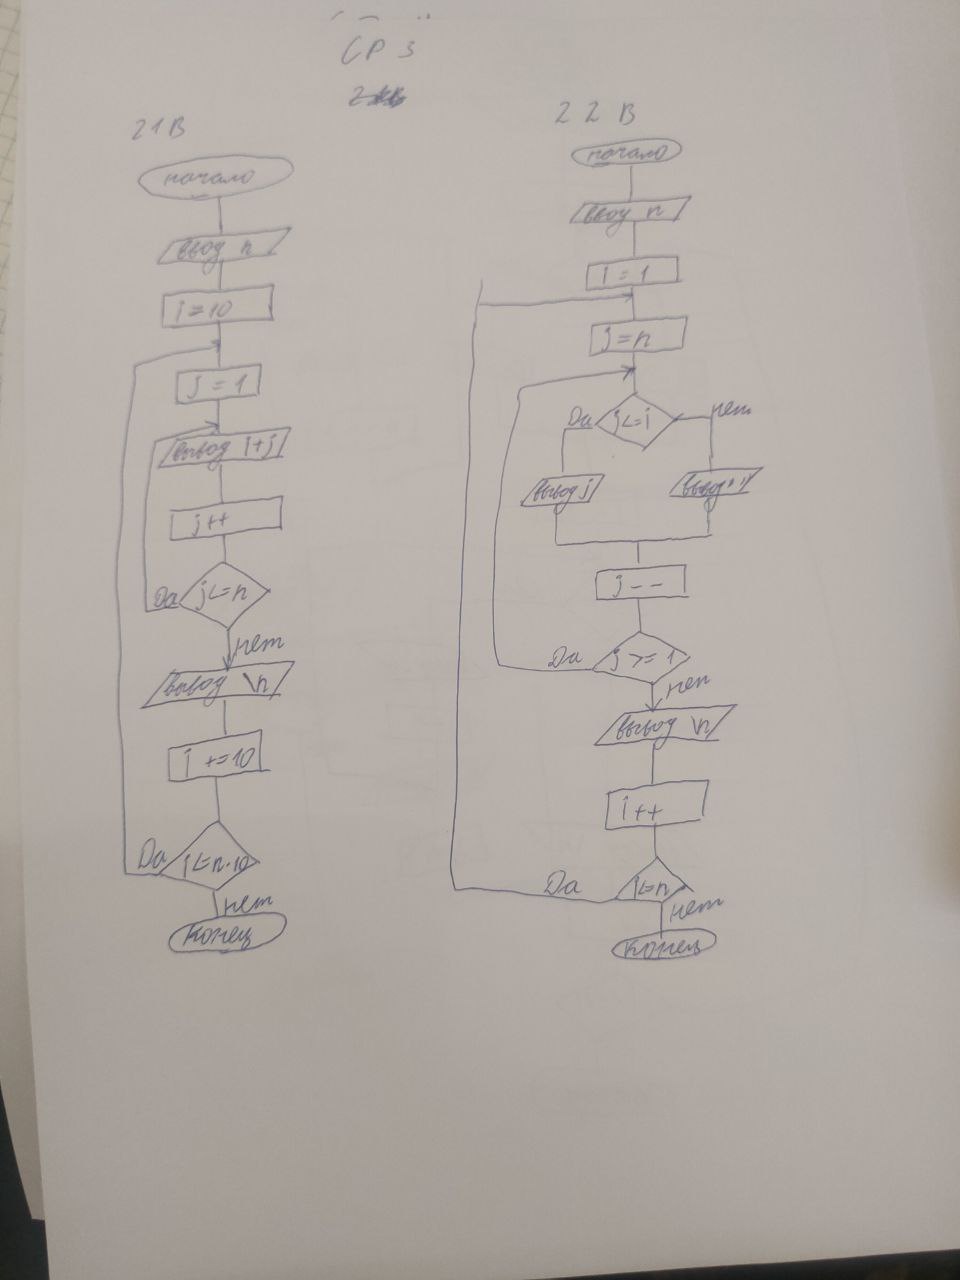 СР 3
21В
начало
ввод n
i=10
j=1
вывод i+j
j++
j<=n
Да
нет
вывод \n
i+=10
Да
i<=n·10
нет
конец
22В
начало
ввод n
i=1
j=n
Да
j<=i
нет
вывод j
вывод ' '
j--
Да
j>=1
нет
вывод \n
i++
Да
i<=n
нет
конец